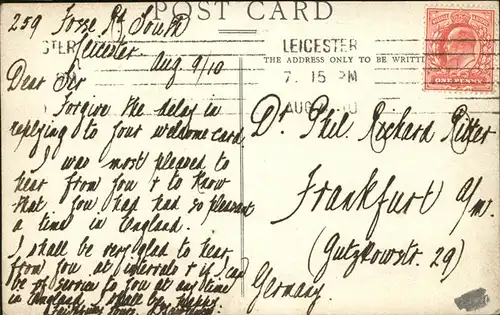 POST CARD
259 Fosse Rd South
Leicester
Aug 9/10
Dear Sir
Forgive the delay in
replying to your welcome card.
I was most pleased to
hear from you & to know
that you had had so pleasant
a time in England.
I shall be very glad to hear
from you at intervals & if I can
be of service to you at any time
in England I shall be happy.
THE ADDRESS ONLY TO BE WRITT
LEICESTER
7. 15 PM
AUG
ONE PENNY
Dr. Phil. Richard Ritter
Frankfurt a/m.
(Gutzkowstr. 29)
Germany.